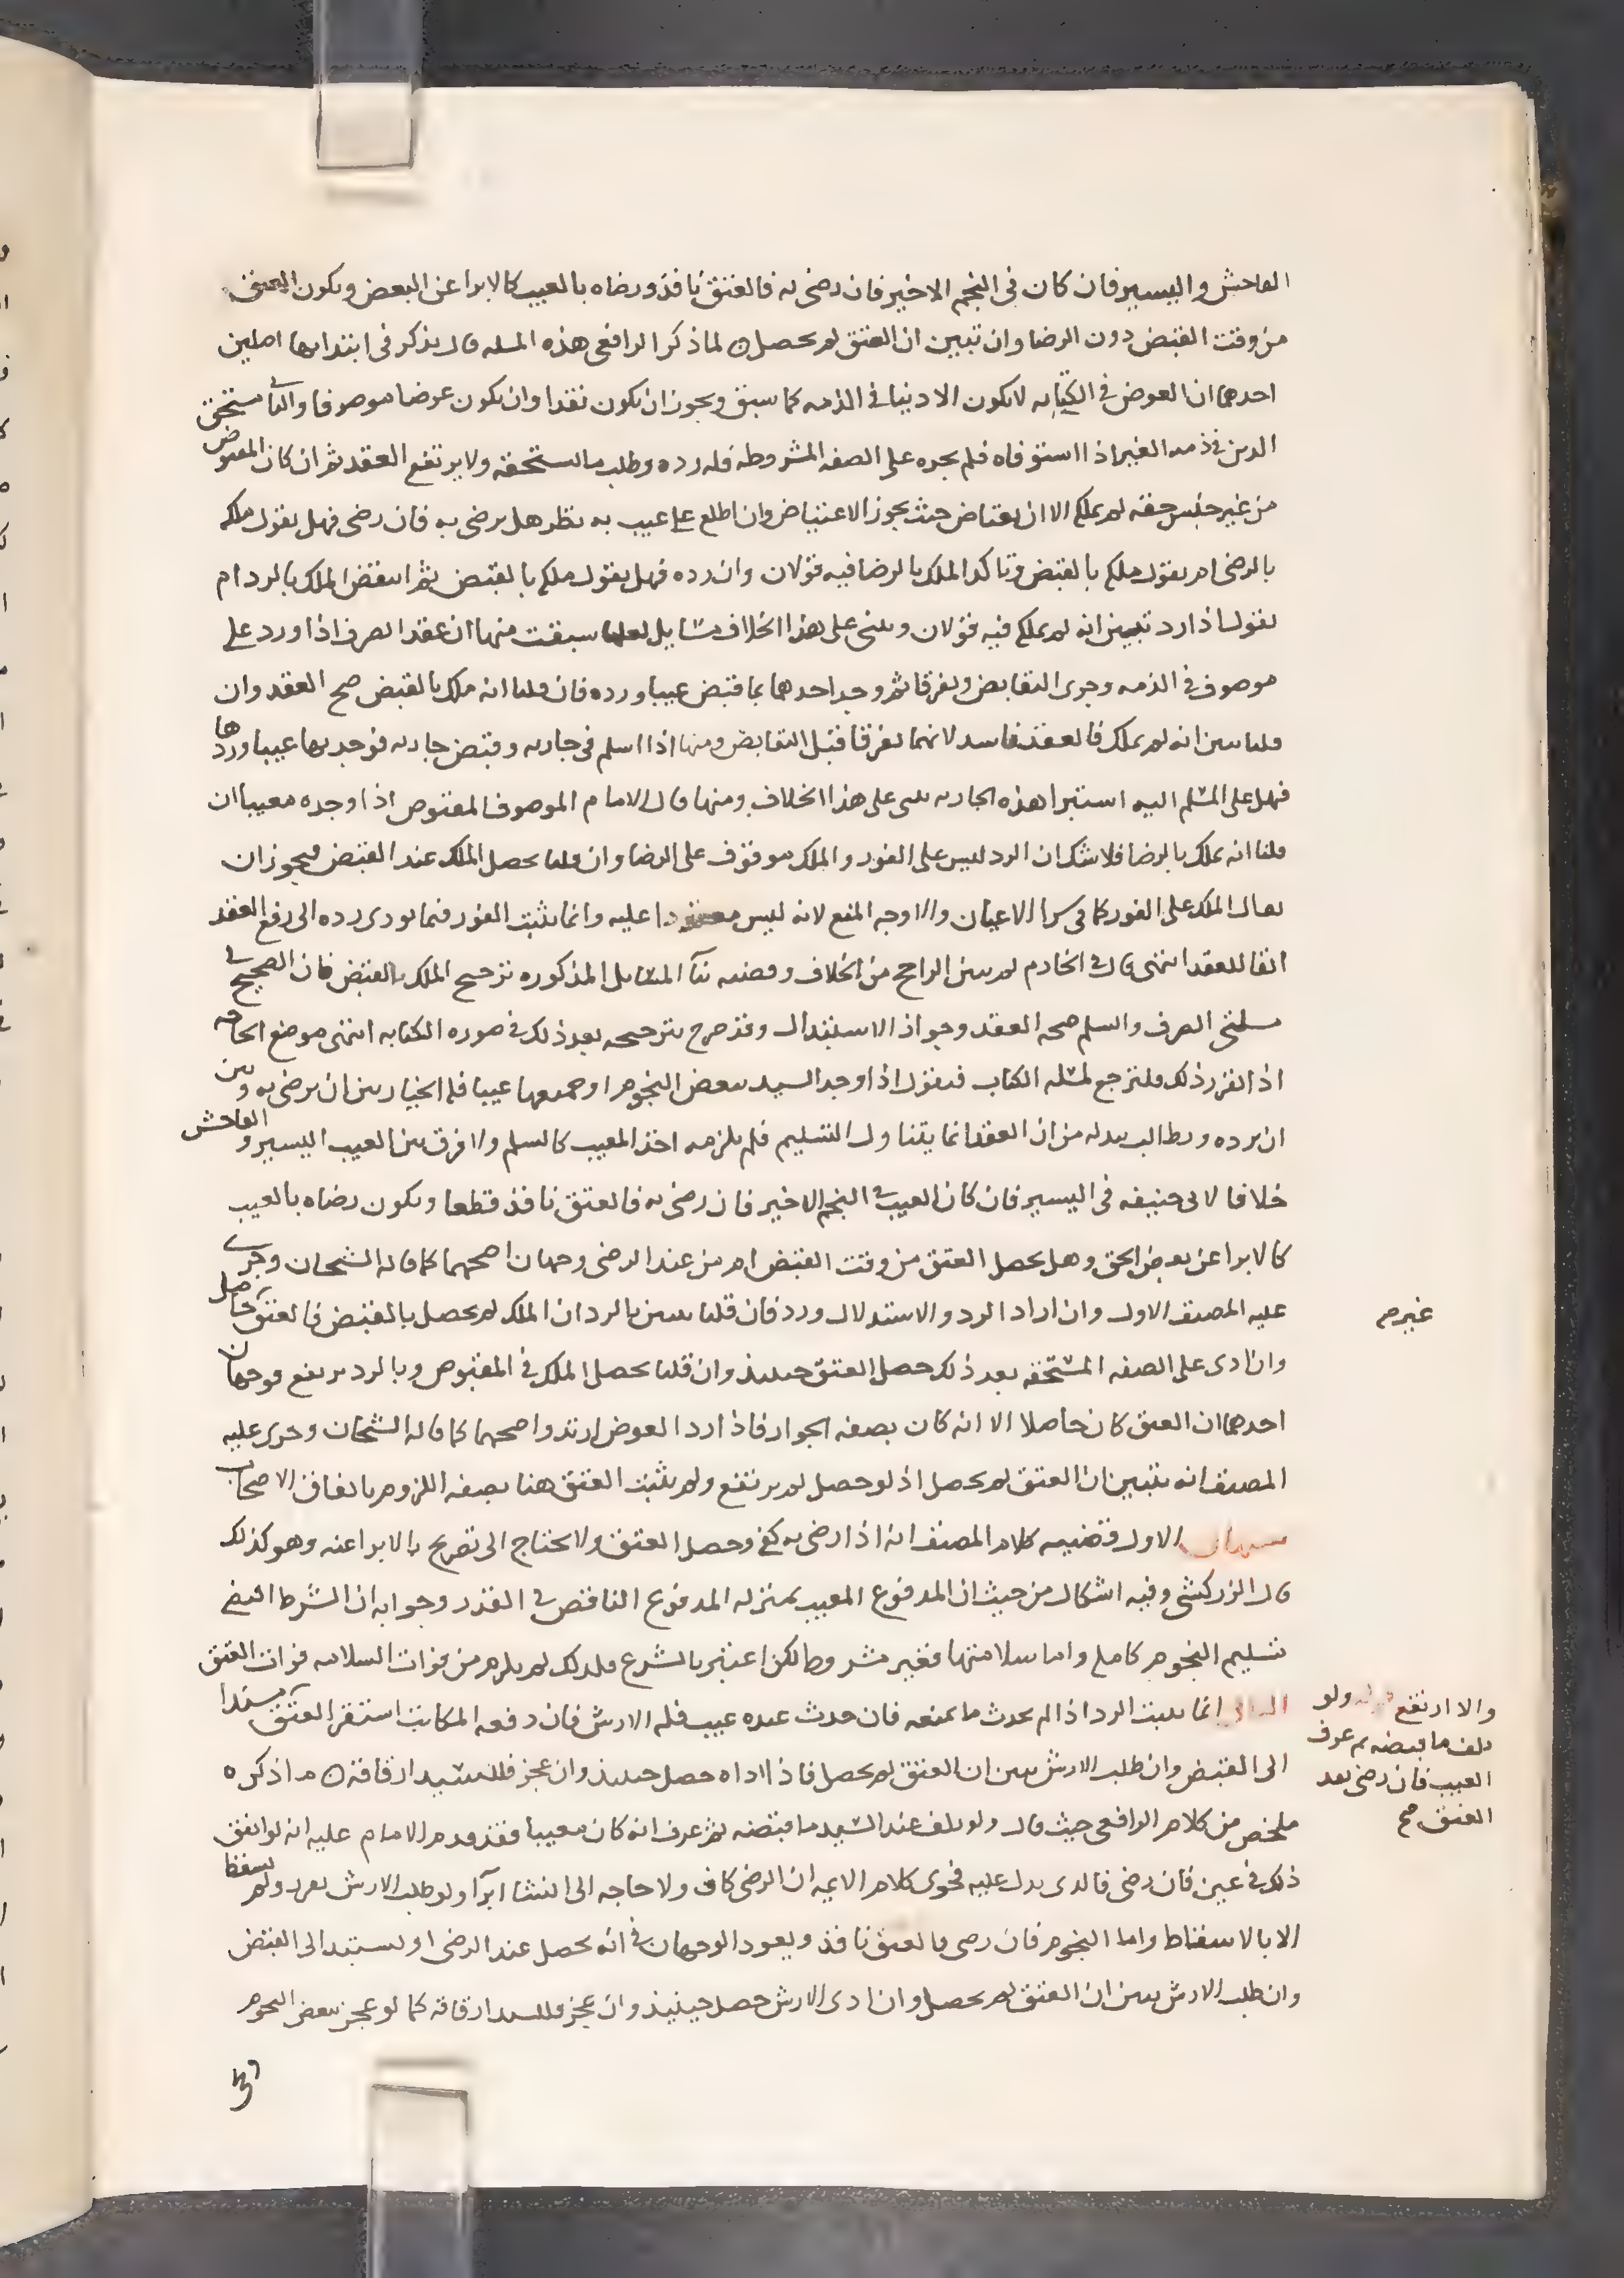 الفاحش واليسير فان كان في النجم الاخير فان رضي به فالعتق نافذ ورضاه بالعيب كالابرا عن البعض ويكون العتق
من وقت القبض دون الرضا وان تبين ان العتق لم يحصل لما ذكر الرافعي هذه المسله قال يذكر في ابتدايها اصلين
احدهما ان العوض في الكتابه لا يكون الا دينا في الذمه كما سبق ويجوز ان يكون نقدا وان يكون عرضا موصوفا والثاني مستحق
الدين في ذمه الغير اذا استوفاه فلم يجده على الصفه المشروطه فله رده وطلب ما يستحقه ولا يرتفع العقد ثم ان كان المقبوض
من غير جنس حقه لم يملكه الا ان يعتاض حيث يجوز الاعتياض وان اطلع على عيب به نظر هل يرضى به فان رضي فهل نقول ملكه
بالرضى ام نقول ملكه بالقبض وتاكد الملك بالرضا فيه قولان وان رده فهل نقول ملكه بالقبض ثم انتقض الملك بالرد ام
نقول اذا رد تبين انه لم يملكه فيه قولان وينبني على هذا الخلاف مسايل سبقت منها ان عقد الصرف اذا ورد على
موصوف في الذمه وجرى التقابض وتفرقا ثم وجد احدهما بما قبض عيبا ورده فان قلنا انه ملك بالقبض صح العقد وان
قلنا تبين انه لم يملك فالعقد فاسد لانهما تفرقا قبل التقابض ومنها اذا اسلم في جاريه وقبض جاريه فوجد بها عيبا وردها
فهل على المسلم اليه استبرا هذه الجاريه ينبني على هذا الخلاف ومنها قال الامام الموصوف المقبوض اذا وجده معيبا ان
قلنا انه يملك بالرضا فلا شك ان الرد ليس على الفور والملك موقوف على الرضا وان قلنا يحصل الملك عند القبض فيجوز ان
يقال الملك على الفور كما في شرا الاعيان والاوجه المنع لانه ليس معقودا عليه وانما يثبت الفور فيما يودي رده الى رفع العقد
ابقا للعقد انتهى قال في الخادم لم يبين الراجح من الخلاف وقضيه بنا المسايل المذكوره ترجيح الملك بالقبض فان الصحيح في
مسلتي الصرف والسلم صحه العقد وجواز الاستبدال وقد صرح بترجيحه بعد ذلك في صوره الكتابه انتهى موضع الحاجه
اذا تقرر ذلك فلنرجع لمسله الكتاب فنقول اذا وجد السيد ببعض النجوم او جميعها عيبا فله الخيار بين ان يرضى به وبين
ان يرده ويطالب ببدله من ان العقد انما يتناول التسليم فلم يلزمه اخذ المعيب كالسلم ولا فرق بين العيب اليسير والفاحش
خلافا لابي حنيفه في اليسير فان كان العيب في النجم الاخير فان رضي به فالعتق نافذ قطعا ويكون رضاه بالعيب
كالابرا عن بعض الحق وهل يحصل العتق من وقت القبض ام من عند الرضى وجهان اصحهما كما قاله الشيخان وجرى
عليه المصنف الاول وان اراد الرد والاستبدال ورد فان قلنا تبين بالرد ان الملك لم يحصل بالقبض فالعتق غير حاصل
وان ادى على الصفه المستحقه بعد ذلك حصل العتق حينيذ وان قلنا يحصل الملك في المقبوض وبالرد يرتفع فوجهان
احدهما ان العتق كان حاصلا الا انه كان بصفه الجواز فاذا رد العوض ارتد واصحهما كما قاله الشيخان وجرى عليه
المصنف انه يتبين ان العتق لم يحصل اذ لو حصل لم يرتفع ولم يثبت العتق هنا بصفه اللزوم باتفاق الاصحاب
تنبيهان الاول قضيه كلام المصنف انه اذا رضي به كفى وحصل العتق ولا يحتاج الى تصريح بالابرا عنه وهو كذلك
قال الزركشي وفيه اشكال من حيث ان المدفوع المعيب بمنزله المدفوع الناقص في القدر وجوابه ان الشرط
تسليم النجوم كامله واما سلامتها فغير مشروط لكن اعتبر بالشرع فلذلك لم يلزم من فوات السلامه فوات العتق
الثاني انما يثبت الرد اذا لم يحدث ما يمنعه فان حدث عنده عيب فله الارش فان دفعه المكاتب استقر العتق مستندا
الى القبض وان طلب الارش تبين ان العتق لم يحصل فاذا اداه حصل حينيذ وان عجز فللسيد ارقاقه ما ذكره
ملخص من كلام الرافعي حيث قال ولو تلف عند السيد ما قبضه ثم عرف انه كان معيبا فقد قدم الامام عليه انه لو اتفق
ذلك في عين فان رضي فالذي يدل عليه فحوى كلام الايمه ان الرضى كاف ولا حاجه الى انشا ابرا ولو طلب الارش تقرر ولم يسقط
الا بالاسقاط واما النجوم فان رضي فالعتق نافذ ويعود الوجهان في انه يحصل عند الرضى او يستند الى القبض
وان طلب الارش تبين ان العتق لم يحصل وان ادى الارش حصل حينيذ وان عجز فللسيد ارقاقه كما لو عجز ببعض النجوم
غير صح
والا ارتفع ولو
تلف ما قبضه ثم عرف
العيب فان رضي بعد
العتق صح